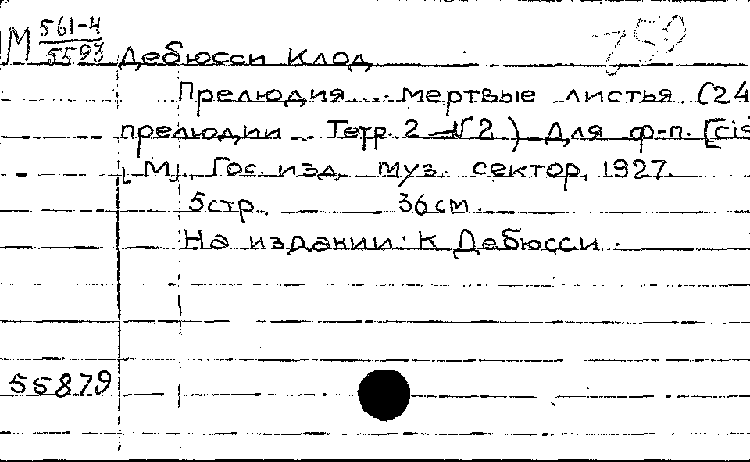 М 561-4
5593 Дебюсси Клод
Прелюдия ... мертвые листья (24
прелюдии .. Тетр. 2 № 2.) Для ф-п. [cis
[М], Гос. изд. муз. сектор, 1927.
5 стр. 36 см.
На издании: К Дебюсси.
55879